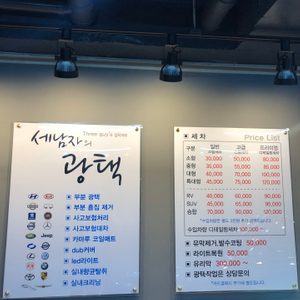 세남자의
Three guy's gloss
광택
부분 광택
부분 흠집 제거
사고보험처리
사고보험대차
카마루 코일매트
dub커버
led라이트
실내항균탈취
실내크리닝
세 차 Price List
구분 일반 고급 프리미엄
소형 30,000 50,000 80,000
중형 35,000 55,000 90,000
대형 40,000 65,000 100,000
특대형 45,000 75,000 120,000
RV 40,000 60,000 90,000
SUV 45,000 65,000 100,000
승합 50,000 70,000 120,000
수입차량 디테일링세차 100,000
유막제거,발수코팅 50,000
라이트복원 50,000
유리막 300,000 ~
광택작업은 상담문의